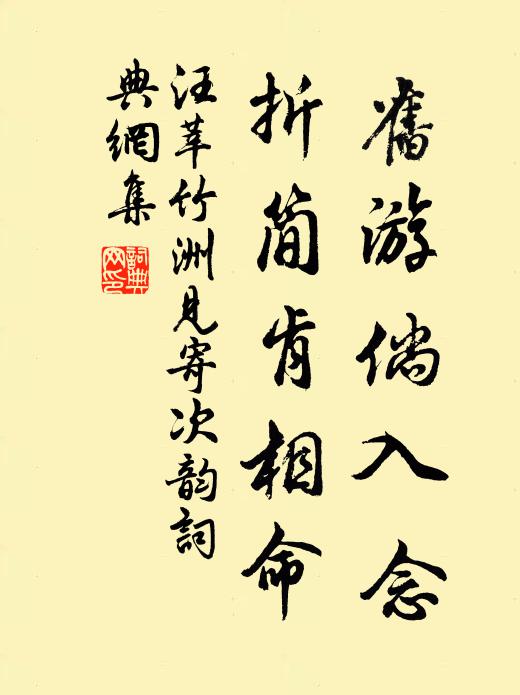 舊游倘入念
折简肯相命
汪莘竹洲見寄次韵詞
典網集
詞典网印